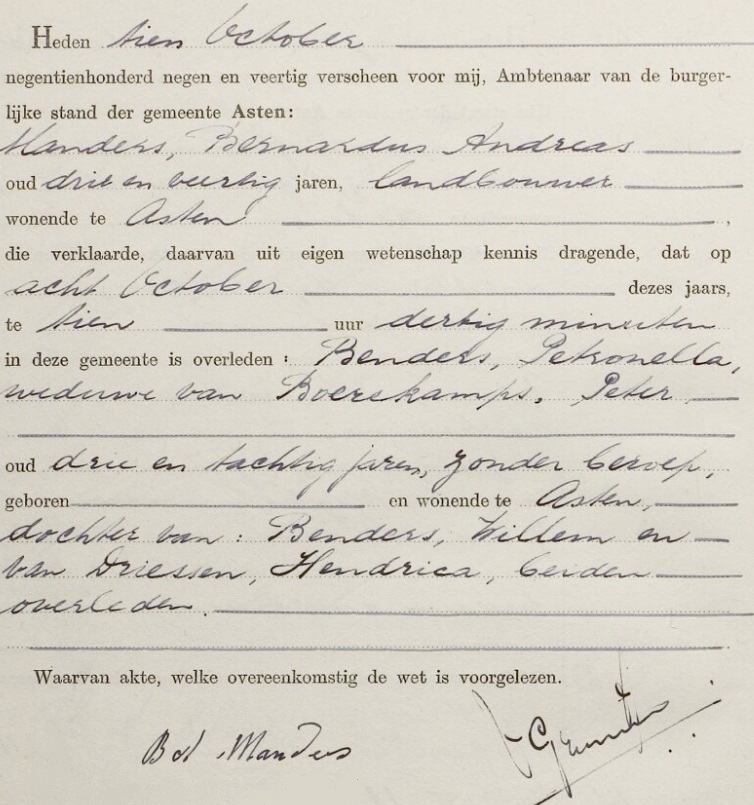 Heden tien October
negentienhonderd negen en veertig verscheen voor mij, Ambtenaar van de burger-
lijke stand der gemeente Asten:
Manders, Bernardus Andreas
oud drie en veertig jaren, landbouwer
wonende te Asten ,
die verklaarde, daarvan uit eigen wetenschap kennis dragende, dat op
acht October dezes jaars,
te tien uur dertig minuten
in deze gemeente is overleden : Benders, Petronella,
weduwe van Boerekamps, Peter
oud drie en tachtig jaren, zonder beroep,
geboren en wonende te Asten,
dochter van : Benders, Willem en
van Driessen, Hendrica, beiden
overleden.
Waarvan akte, welke overeenkomstig de wet is voorgelezen.
Manders